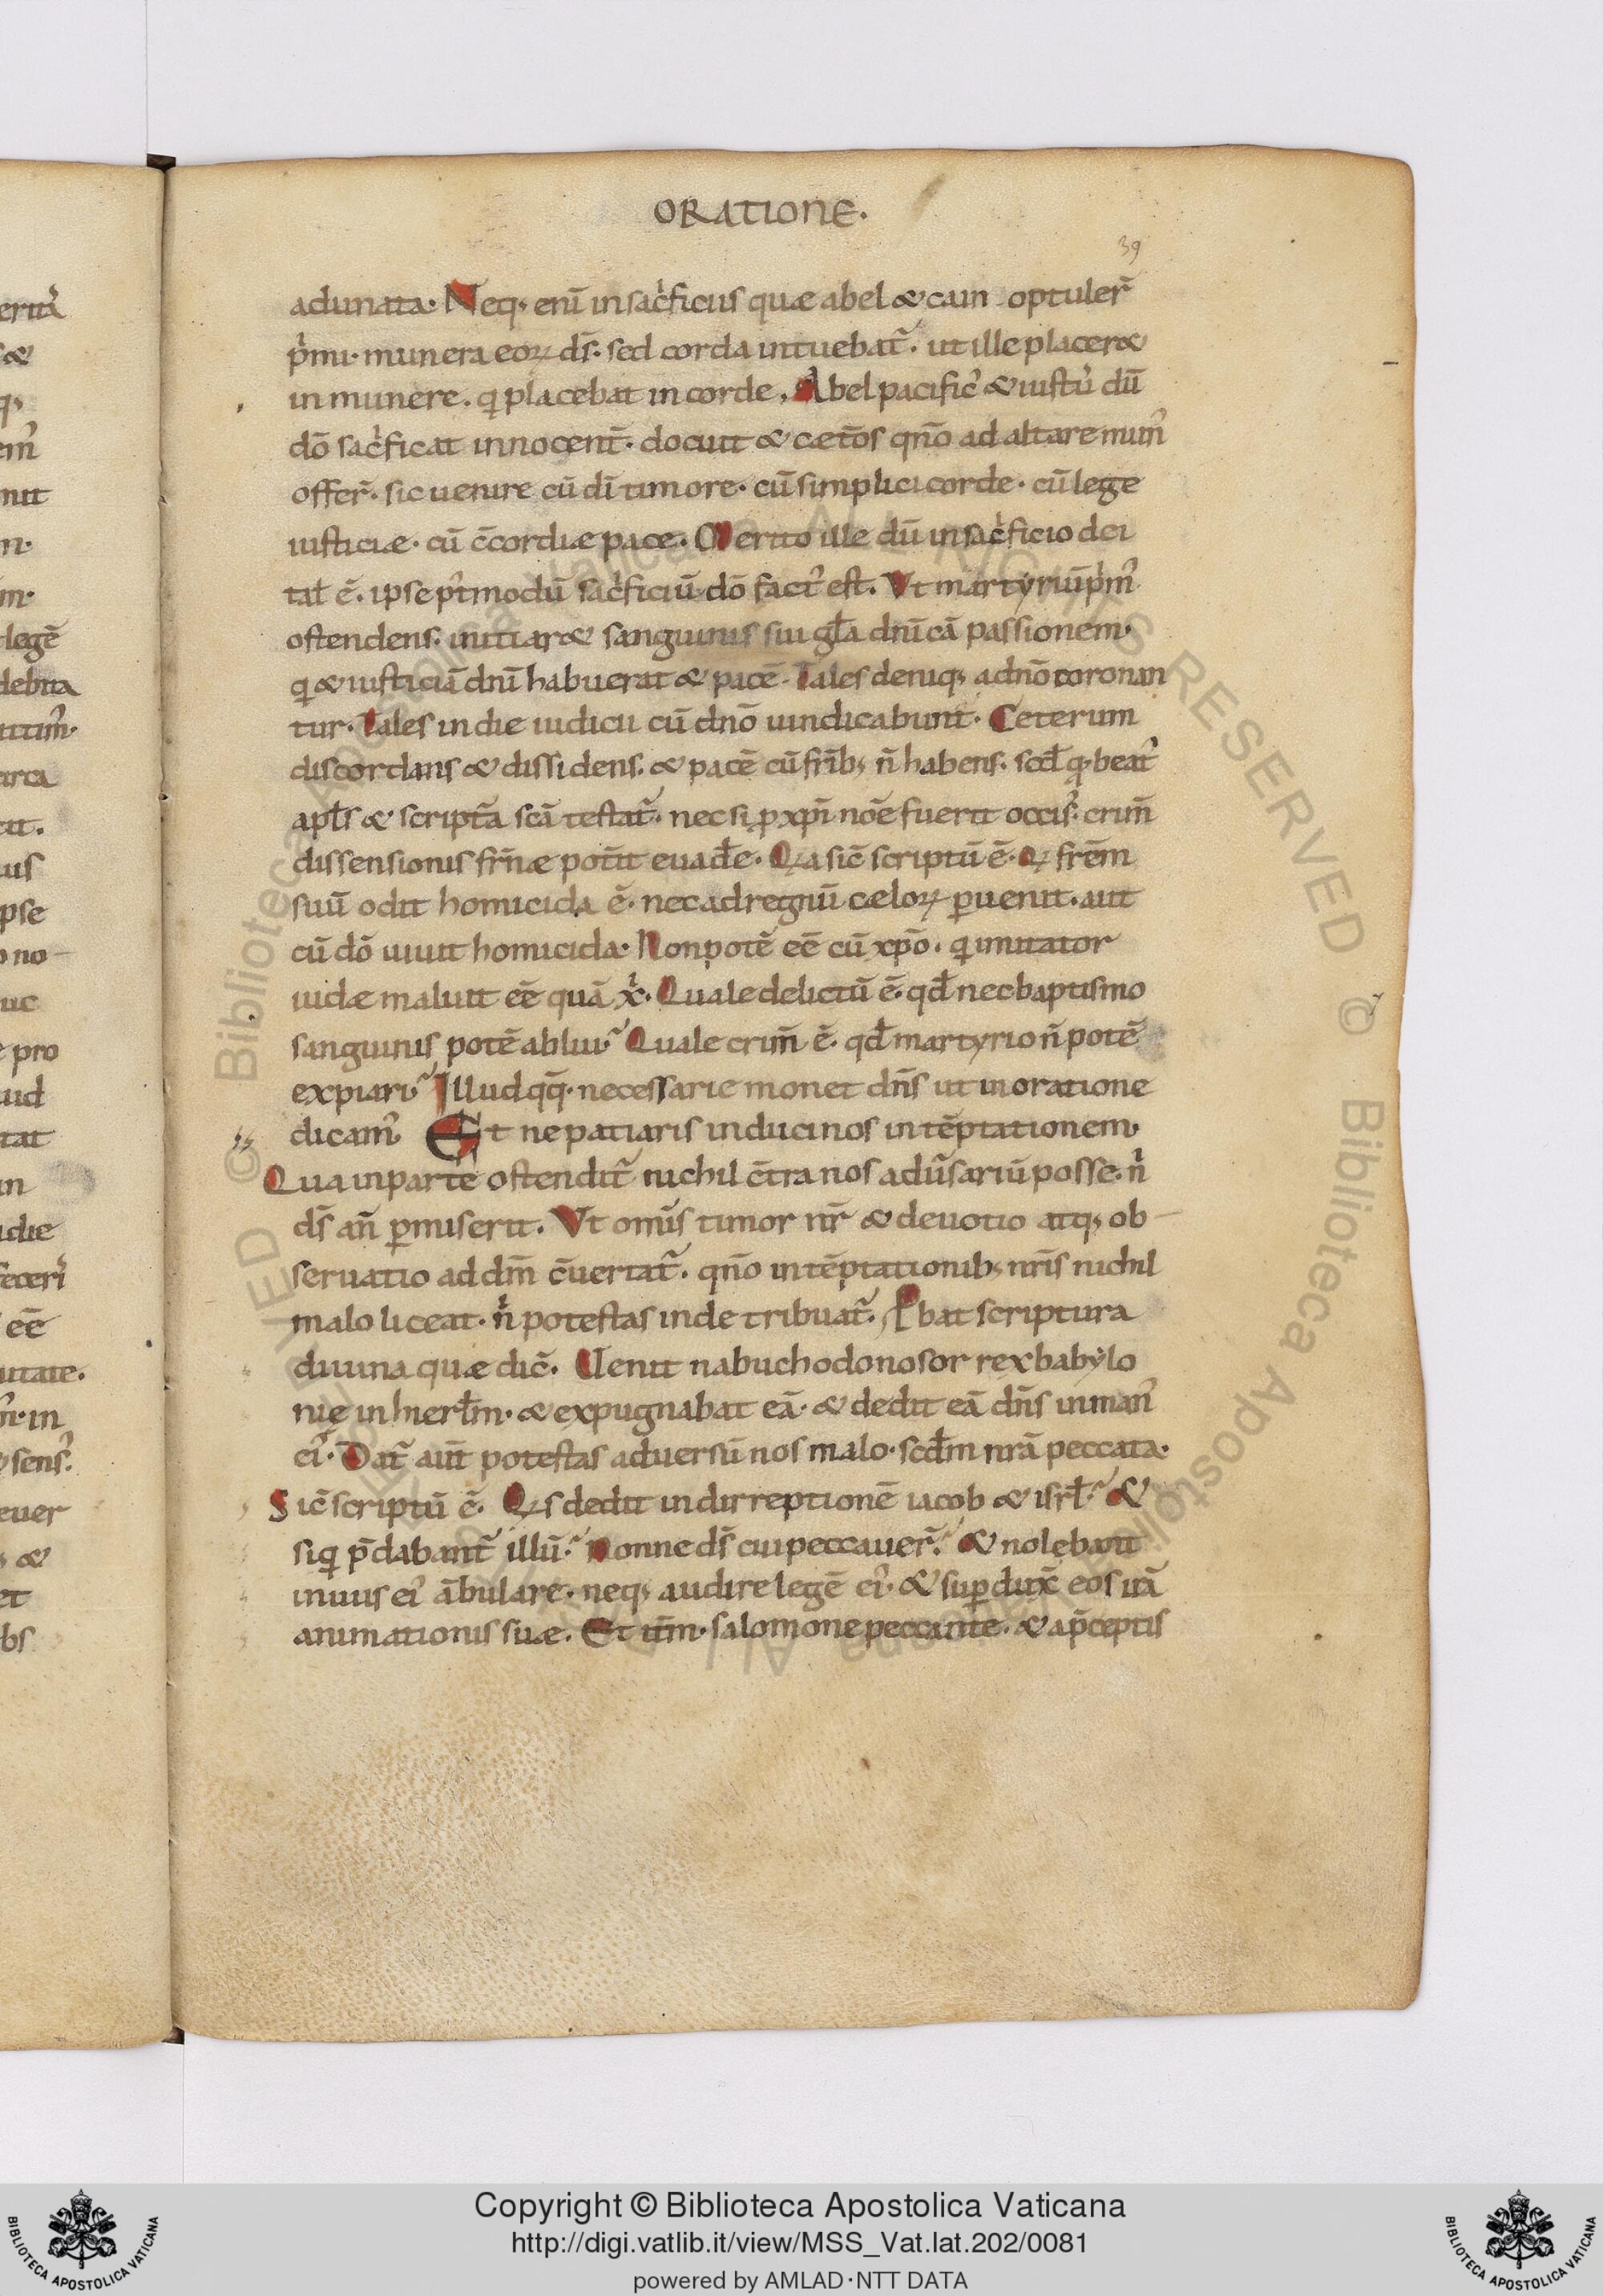 ORATIONE.
39
adunata. Neq; enī in sac̓ficiis quæ abel & cain optuler̄
p̓mi. munera eoꝝ d̄s. sed corda intuebat᷑. ut ille placer&
in munere. q̓ placebat in corde. Abel pacific᾿ & iust᾿ dū
dō sac̓ficat innocent̄. docuit & cæt̄os qn̄o ad altare mun᾿
offer̄. sic uenire cū dī timore. cū simplici corde. cū lege
iusticiæ. cū c̄cordiæ pace. Merito ille dū in sac̓ficio dei
tal̄ ē. ipse p̓tmodū sac̓ficiū dō fact᾿ est. Vt martyriū p̓m᾿
ostendens. initiar& sanguinis sui gl̄a dn̄icā passionem.
q̓ & iusticiā dn̄i habuerat & pacē. Tales deniq; a dn̄o coronan
tur. Tales in die iudicii cū dn̄o uindicabunt. Ceterum
discordans & dissidens. & pacē cū frīb; n̄ habens. scd̄ q. beat᾿
apl̄s & script̄a sc̄a testat᷑. nec si ꝓ xp̄i nōe fuerit occis᾿. crim̄
dissensionis frn̄æ pot̄it euad̄e. Qꝛa sic̄ scriptū ē. Qꝛ frēm
suū odit homicida ē. nec ad regnū cæloꝝ ꝑuenit. aut
cū dō uiuit homicida. Non potē eē cū xp̄o. q̓ imitator
iudæ maluit eē quā x̓. Quale delictū ē. qd̄ nec baptismo
sanguinis potē ablui? Quale crim̄ ē. qd̄ martyrio n̄ potē
expiari? Illud qq̄. necessarie monet dn̄s ut in oratione
dicam᾿ Et ne patiaris induci nos in tēptationem.
Qua in parte ostendit᷑ nichil c̄tra nos adu̓sariū posse. n̓
d̄s an̄ ꝑmiserit. Vt omīs timor nr̄ & deuotio atq; ob-
seruatio ad dm̄ c̄uertat᷑. qn̄o in tēptationib; nr̄is nichil
malo liceat. n̓ potestas inde tribuat᷑. Ꝓbat scriptura
diuina quæ dic̄. Uenit nabuchodonosor rex babylo
nie in hierl̄m. & expugnabat eā. & dedit eā dn̄s in man᾿
ei᾿. Dat᷑ aut̄ potestas aduersū nos malo. scd̄m nr̄a peccata.
Sic̄ scriptū ē. Qꝛs dedit in dirreptionē iacob & isrl̄? &
siq̓ p̄dabant᷑ illū? Nonne d̄s cui peccauer̄? & nolebant
in uiis ei᾿ ābulare. neq; audire legē ei᾿. & suꝑdux̄ eos irā
animationis suæ. Et itm̄. salomone peccante. & a p̄ceptis
Copyright © Biblioteca Apostolica Vaticana
http://digi.vatlib.it/view/MSS_Vat.lat.202/0081
powered by AMLAD·NTT DATA